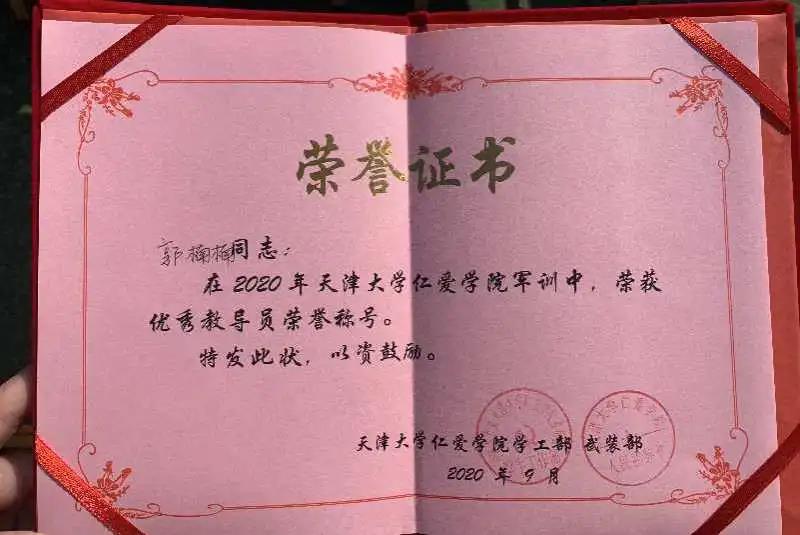 荣誉证书
郭楠楠同志：
在2020年天津大学仁爱学院军训中，荣获
优秀教导员荣誉称号。
特发此状，以资鼓励。
天津大学仁爱学院学工部 武装部
2020 年 9 月